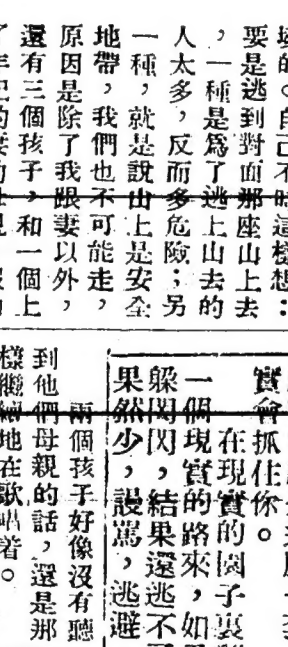 的。自己不時這樣想：
要是逃到對面那座山上去
，一種是爲了逃上山去的
人太多，反而多危險；另
一種，就是說山上是安全
地帶，我們也不可能走，
原因是除了我跟妻以外，
還有三個孩子，和一個上
了年紀的妻的母
實會抓住你。
在現實的園子裏
一個現實的路來，如
躲閃閃，結果還逃不
果然少，謾罵，逃避
兩個孩子好像沒有聽
到他們母親的話，還是那
樣繼續地在歌唱着。